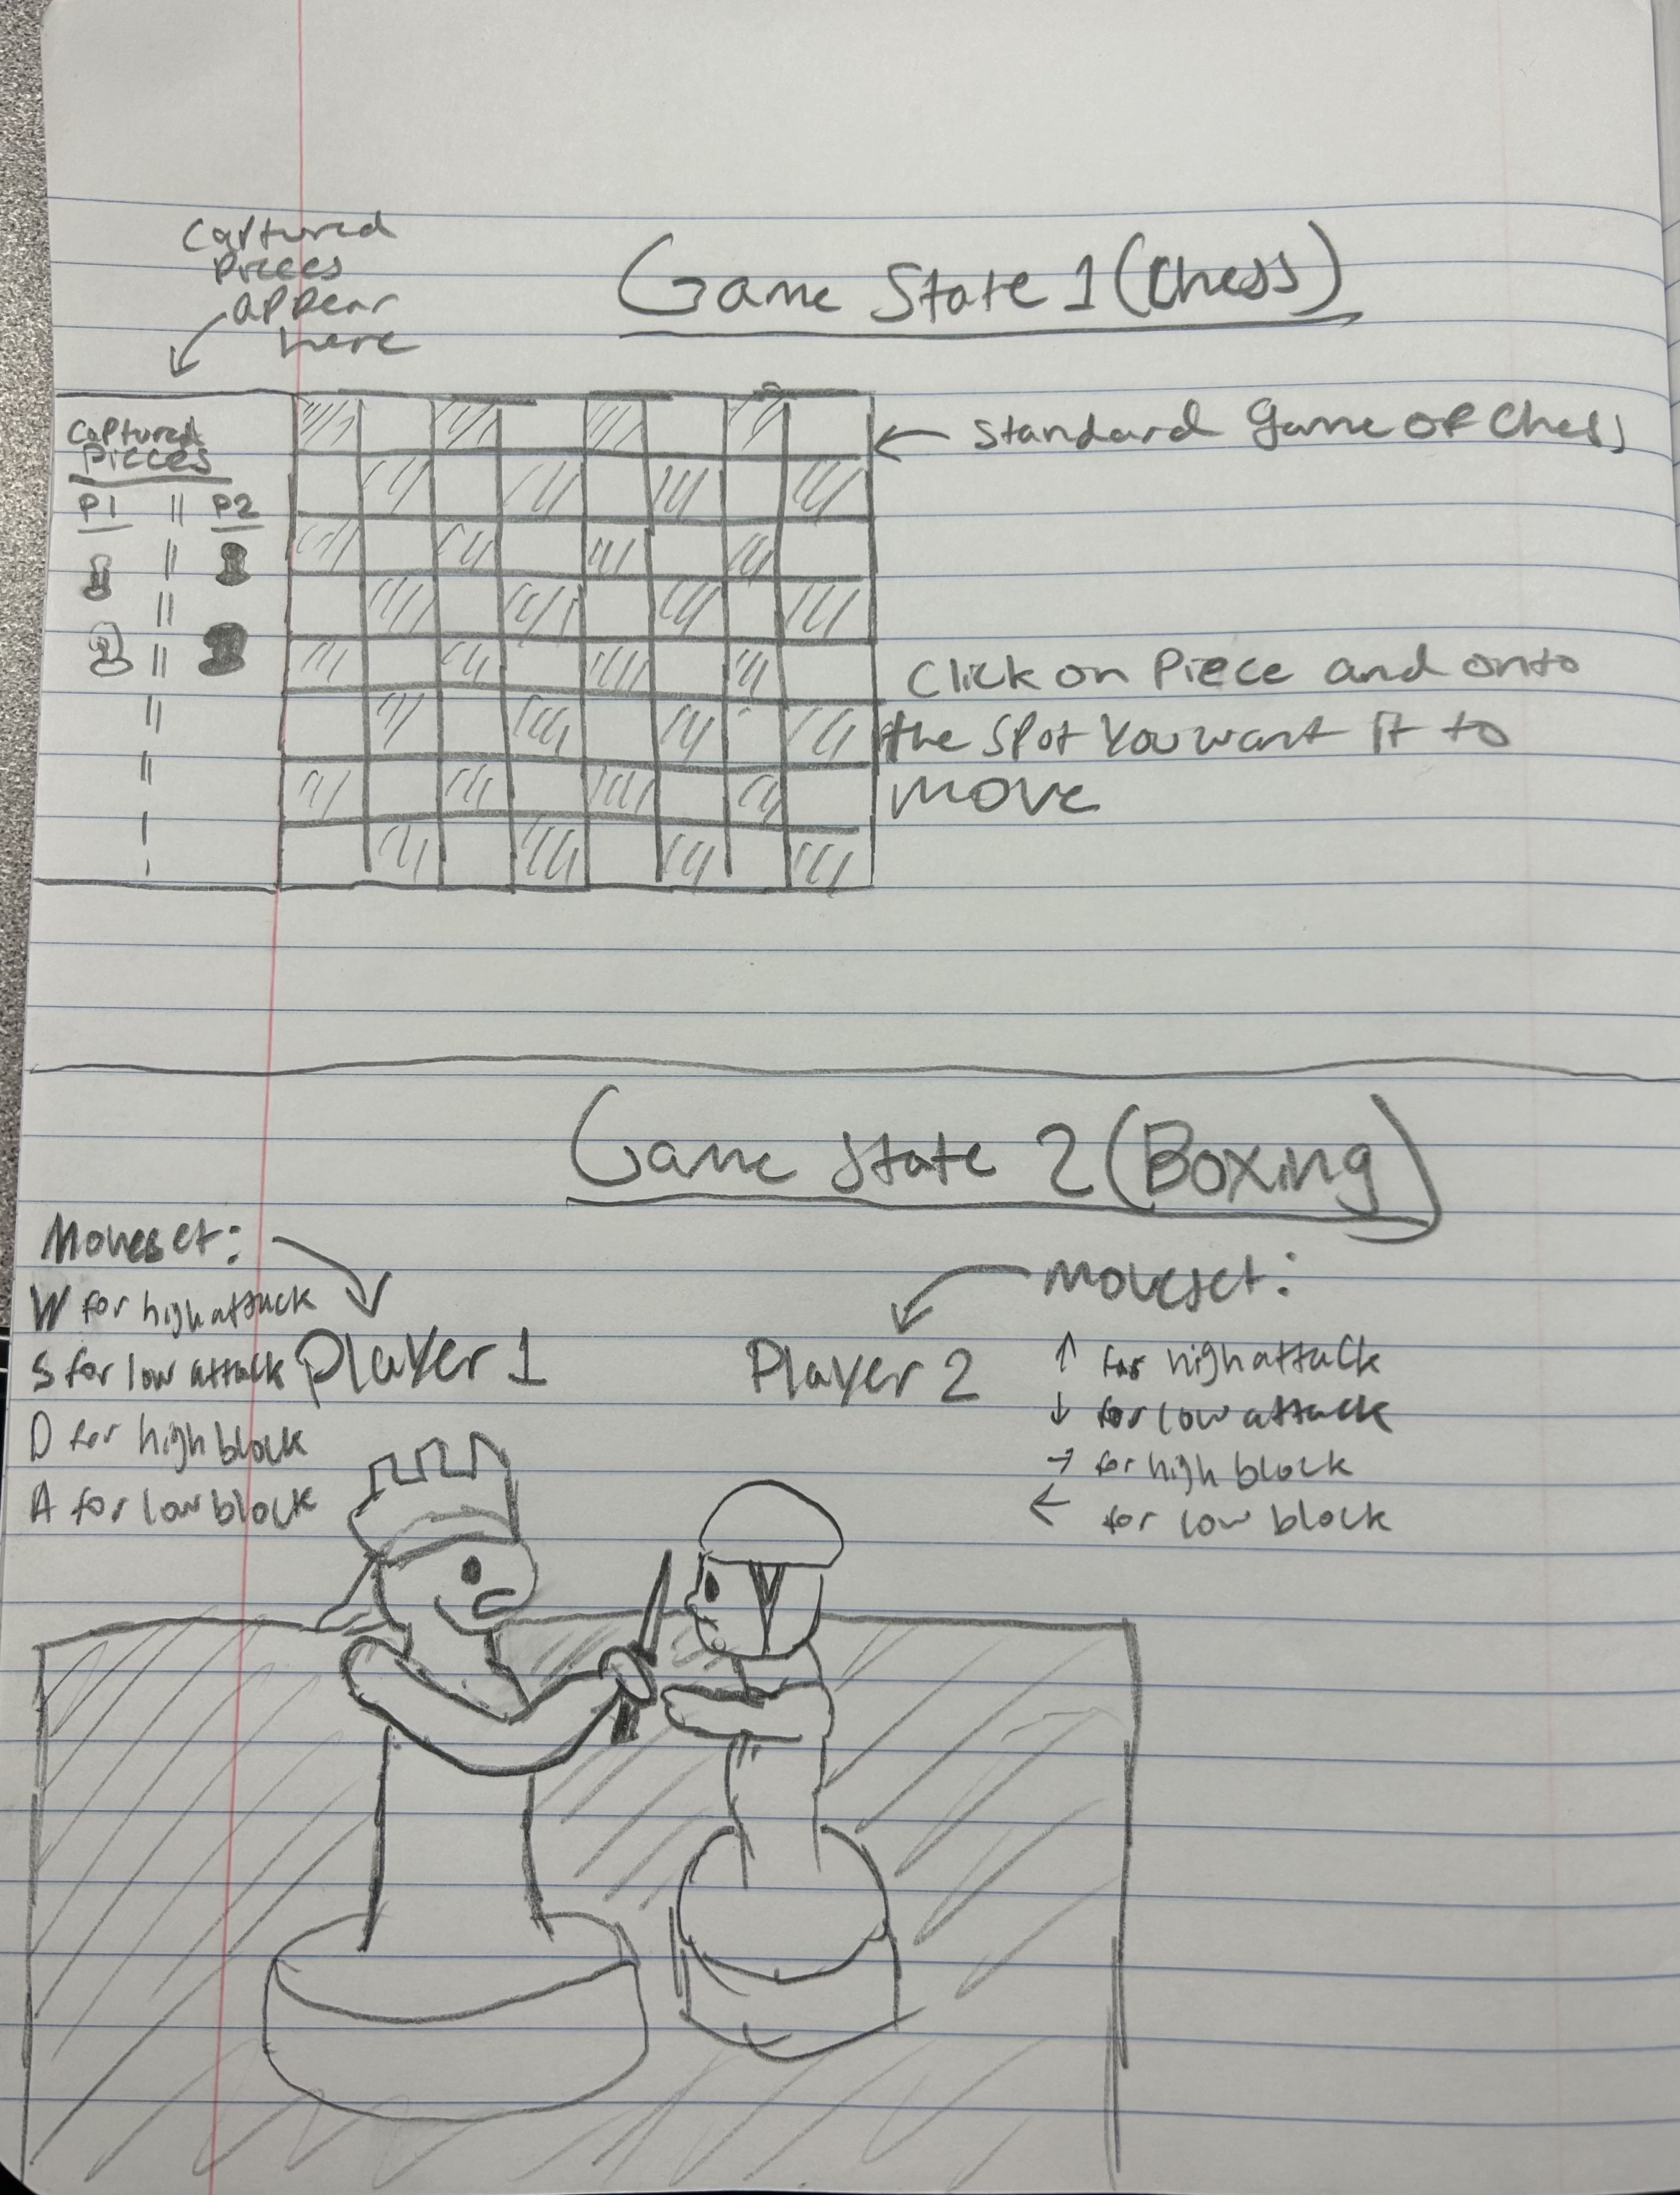 Captured
Pieces
appear
here
Game State 1 (Chess)
Captured
Pieces
P1 || P2
Standard Game of Chess
Click on Piece and onto
the spot you want it to
move
Game State 2 (Boxing)
Moveset:
W for high attack
S for low attack
D for high block
A for low block
Player 1
Player 2
Moveset:
↑ for high attack
↓ for low attack
→ for high block
← for low block